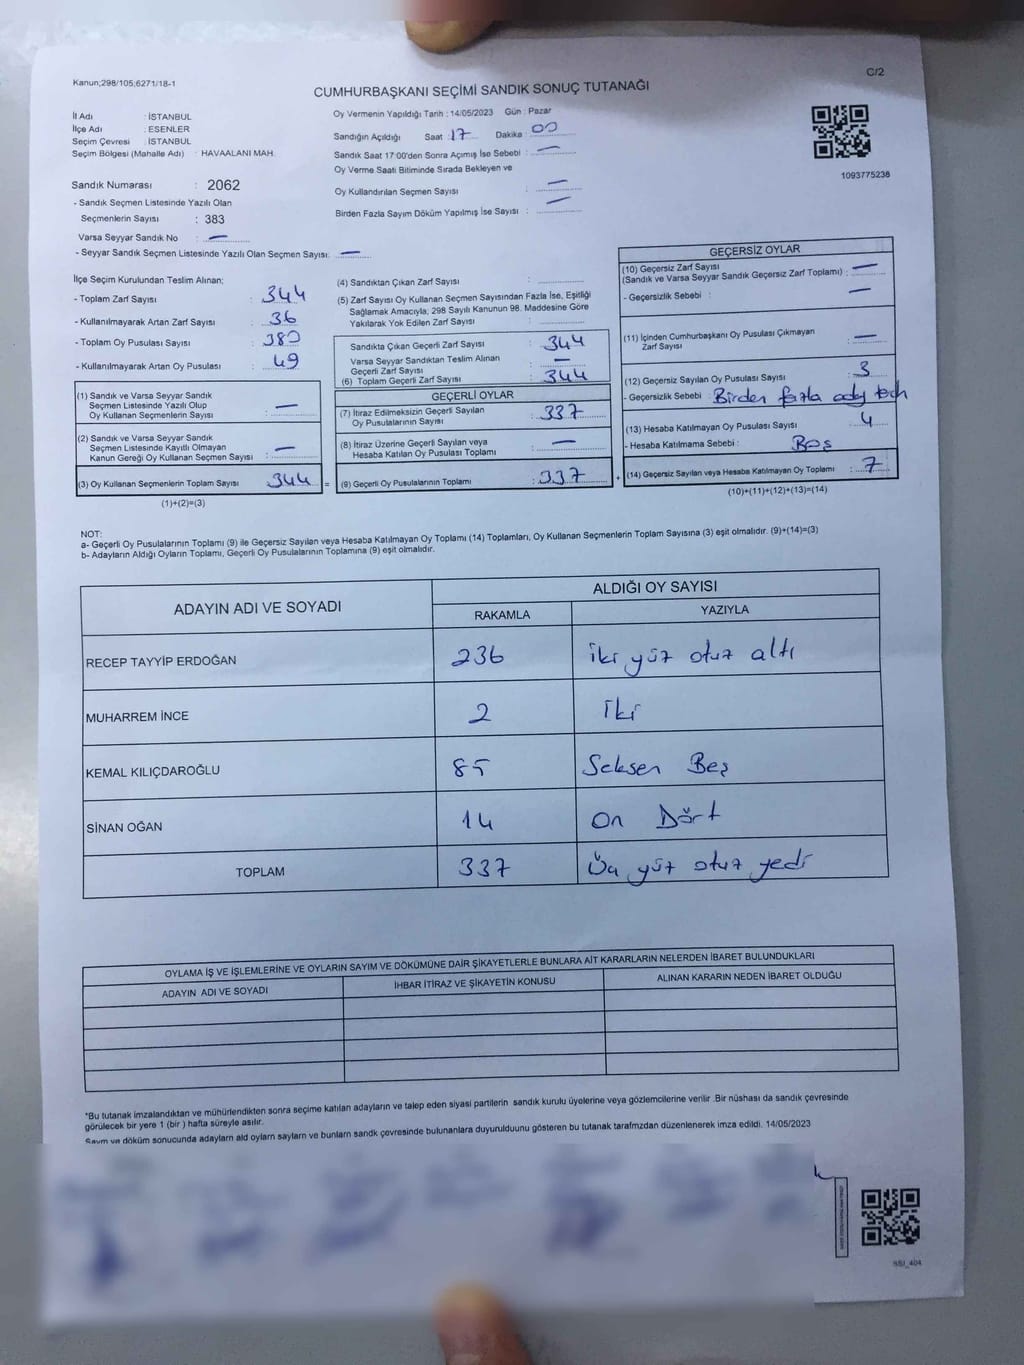 Kanun;298/105;6271/18-1
C/2
CUMHURBAŞKANI SEÇİMİ SANDIK SONUÇ TUTANAĞI
İl Adı : İSTANBUL
İlçe Adı : ESENLER
Seçim Çevresi : İSTANBUL
Seçim Bölgesi (Mahalle Adı) : HAVAALANI MAH.
Sandık Numarası : 2062
- Sandık Seçmen Listesinde Yazılı Olan
Seçmenlerin Sayısı : 383
Varsa Seyyar Sandık No : —
- Seyyar Sandık Seçmen Listesinde Yazılı Olan Seçmen Sayısı: —
Oy Vermenin Yapıldığı Tarih : 14/05/2023 Gün : Pazar
Sandığın Açıldığı Saat : 17 Dakika : 00
Sandık Saat 17:00'den Sonra Açımış İse Sebebi : —
Oy Verme Saati Bitiminde Sırada Bekleyen ve
Oy Kullandırılan Seçmen Sayısı : —
Birden Fazla Sayım Döküm Yapılmış İse Sayısı : —
1093775238
İlçe Seçim Kurulundan Teslim Alınan;
- Toplam Zarf Sayısı : 344
- Kullanılmayarak Artan Zarf Sayısı : 36
- Toplam Oy Pusulası Sayısı : 380
- Kullanılmayarak Artan Oy Pusulası : 49
(1) Sandık ve Varsa Seyyar Sandık
Seçmen Listesinde Yazılı Olup
Oy Kullanan Seçmenlerin Sayısı : —
(2) Sandık ve Varsa Seyyar Sandık
Seçmen Listesinde Kayıtlı Olmayan
Kanun Gereği Oy Kullanan Seçmen Sayısı : —
(3) Oy Kullanan Seçmenlerin Toplam Sayısı : 344 =
(1)+(2)=(3)
(4) Sandıktan Çıkan Zarf Sayısı :
(5) Zarf Sayısı Oy Kullanan Seçmen Sayısından Fazla İse, Eşitliği
Sağlamak Amacıyla; 298 Sayılı Kanunun 98. Maddesine Göre
Yakılarak Yok Edilen Zarf Sayısı :
Sandıkta Çıkan Geçerli Zarf Sayısı : 344
Varsa Seyyar Sandıktan Teslim Alınan
Geçerli Zarf Sayısı : —
(6) Toplam Geçerli Zarf Sayısı : 344
GEÇERLİ OYLAR
(7) İtiraz Edilmeksizin Geçerli Sayılan
Oy Pusulalarının Sayısı : 337
(8) İtiraz Üzerine Geçerli Sayılan veya
Hesaba Katılan Oy Pusulası Toplamı : —
(9) Geçerli Oy Pusulalarının Toplamı : 337 +
GEÇERSİZ OYLAR
(10) Geçersiz Zarf Sayısı
(Sandık ve Varsa Seyyar Sandık Geçersiz Zarf Toplamı) : —
- Geçersizlik Sebebi : —
(11) İçinden Cumhurbaşkanı Oy Pusulası Çıkmayan
Zarf Sayısı : —
(12) Geçersiz Sayılan Oy Pusulası Sayısı : 3
- Geçersizlik Sebebi : Birden fazla aday
(13) Hesaba Katılmayan Oy Pusulası Sayısı : 4
- Hesaba Katılmama Sebebi : Boş
(14) Geçersiz Sayılan veya Hesaba Katılmayan Oy Toplamı : 7
(10)+(11)+(12)+(13)=(14)
NOT:
a- Geçerli Oy Pusulalarının Toplamı (9) ile Geçersiz Sayılan veya Hesaba Katılmayan Oy Toplamı (14) Toplamları, Oy Kullanan Seçmenlerin Toplam Sayısına (3) eşit olmalıdır. (9)+(14)=(3)
b- Adayların Aldığı Oyların Toplamı, Geçerli Oy Pusulalarının Toplamına (9) eşit olmalıdır.
ADAYIN ADI VE SOYADI
ALDIĞI OY SAYISI
RAKAMLA YAZIYLA
RECEP TAYYİP ERDOĞAN 236 İki yüz otuz altı
MUHARREM İNCE 2 İki
KEMAL KILIÇDAROĞLU 85 Seksen Beş
SİNAN OĞAN 14 On Dört
TOPLAM 337 Üç yüz otuz yedi
OYLAMA İŞ VE İŞLEMLERİNE VE OYLARIN SAYIM VE DÖKÜMÜNE DAİR ŞİKAYETLERLE BUNLARA AİT KARARLARIN NELERDEN İBARET BULUNDUKLARI
ADAYIN ADI VE SOYADI İHBAR İTİRAZ VE ŞİKAYETİN KONUSU ALINAN KARARIN NEDEN İBARET OLDUĞU
*Bu tutanak imzalandıktan ve mühürlendikten sonra seçime katılan adayların ve talep eden siyasi partilerin sandık kurulu üyelerine veya gözlemcilerine verilir .Bir nüshası da sandık çevresinde
görülecek bir yere 1 (bir ) hafta süreyle asılır.
Sayım ve döküm sonucunda adayların ald oyların sayları ve bunların sandk çevresinde bulunanlara duyurulduunu gösteren bu tutanak tarafmzdan düzenlenerek imza edildi. 14/05/2023
SSI_404